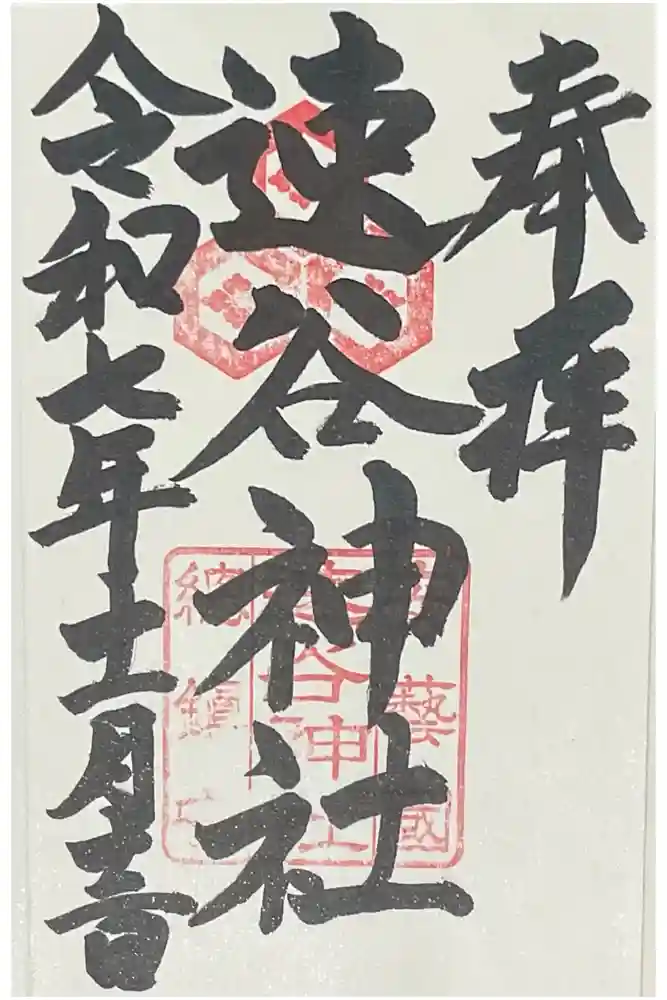 奉拝
速谷神社
令和七年十一月
藝國
速谷神社
總鎮守